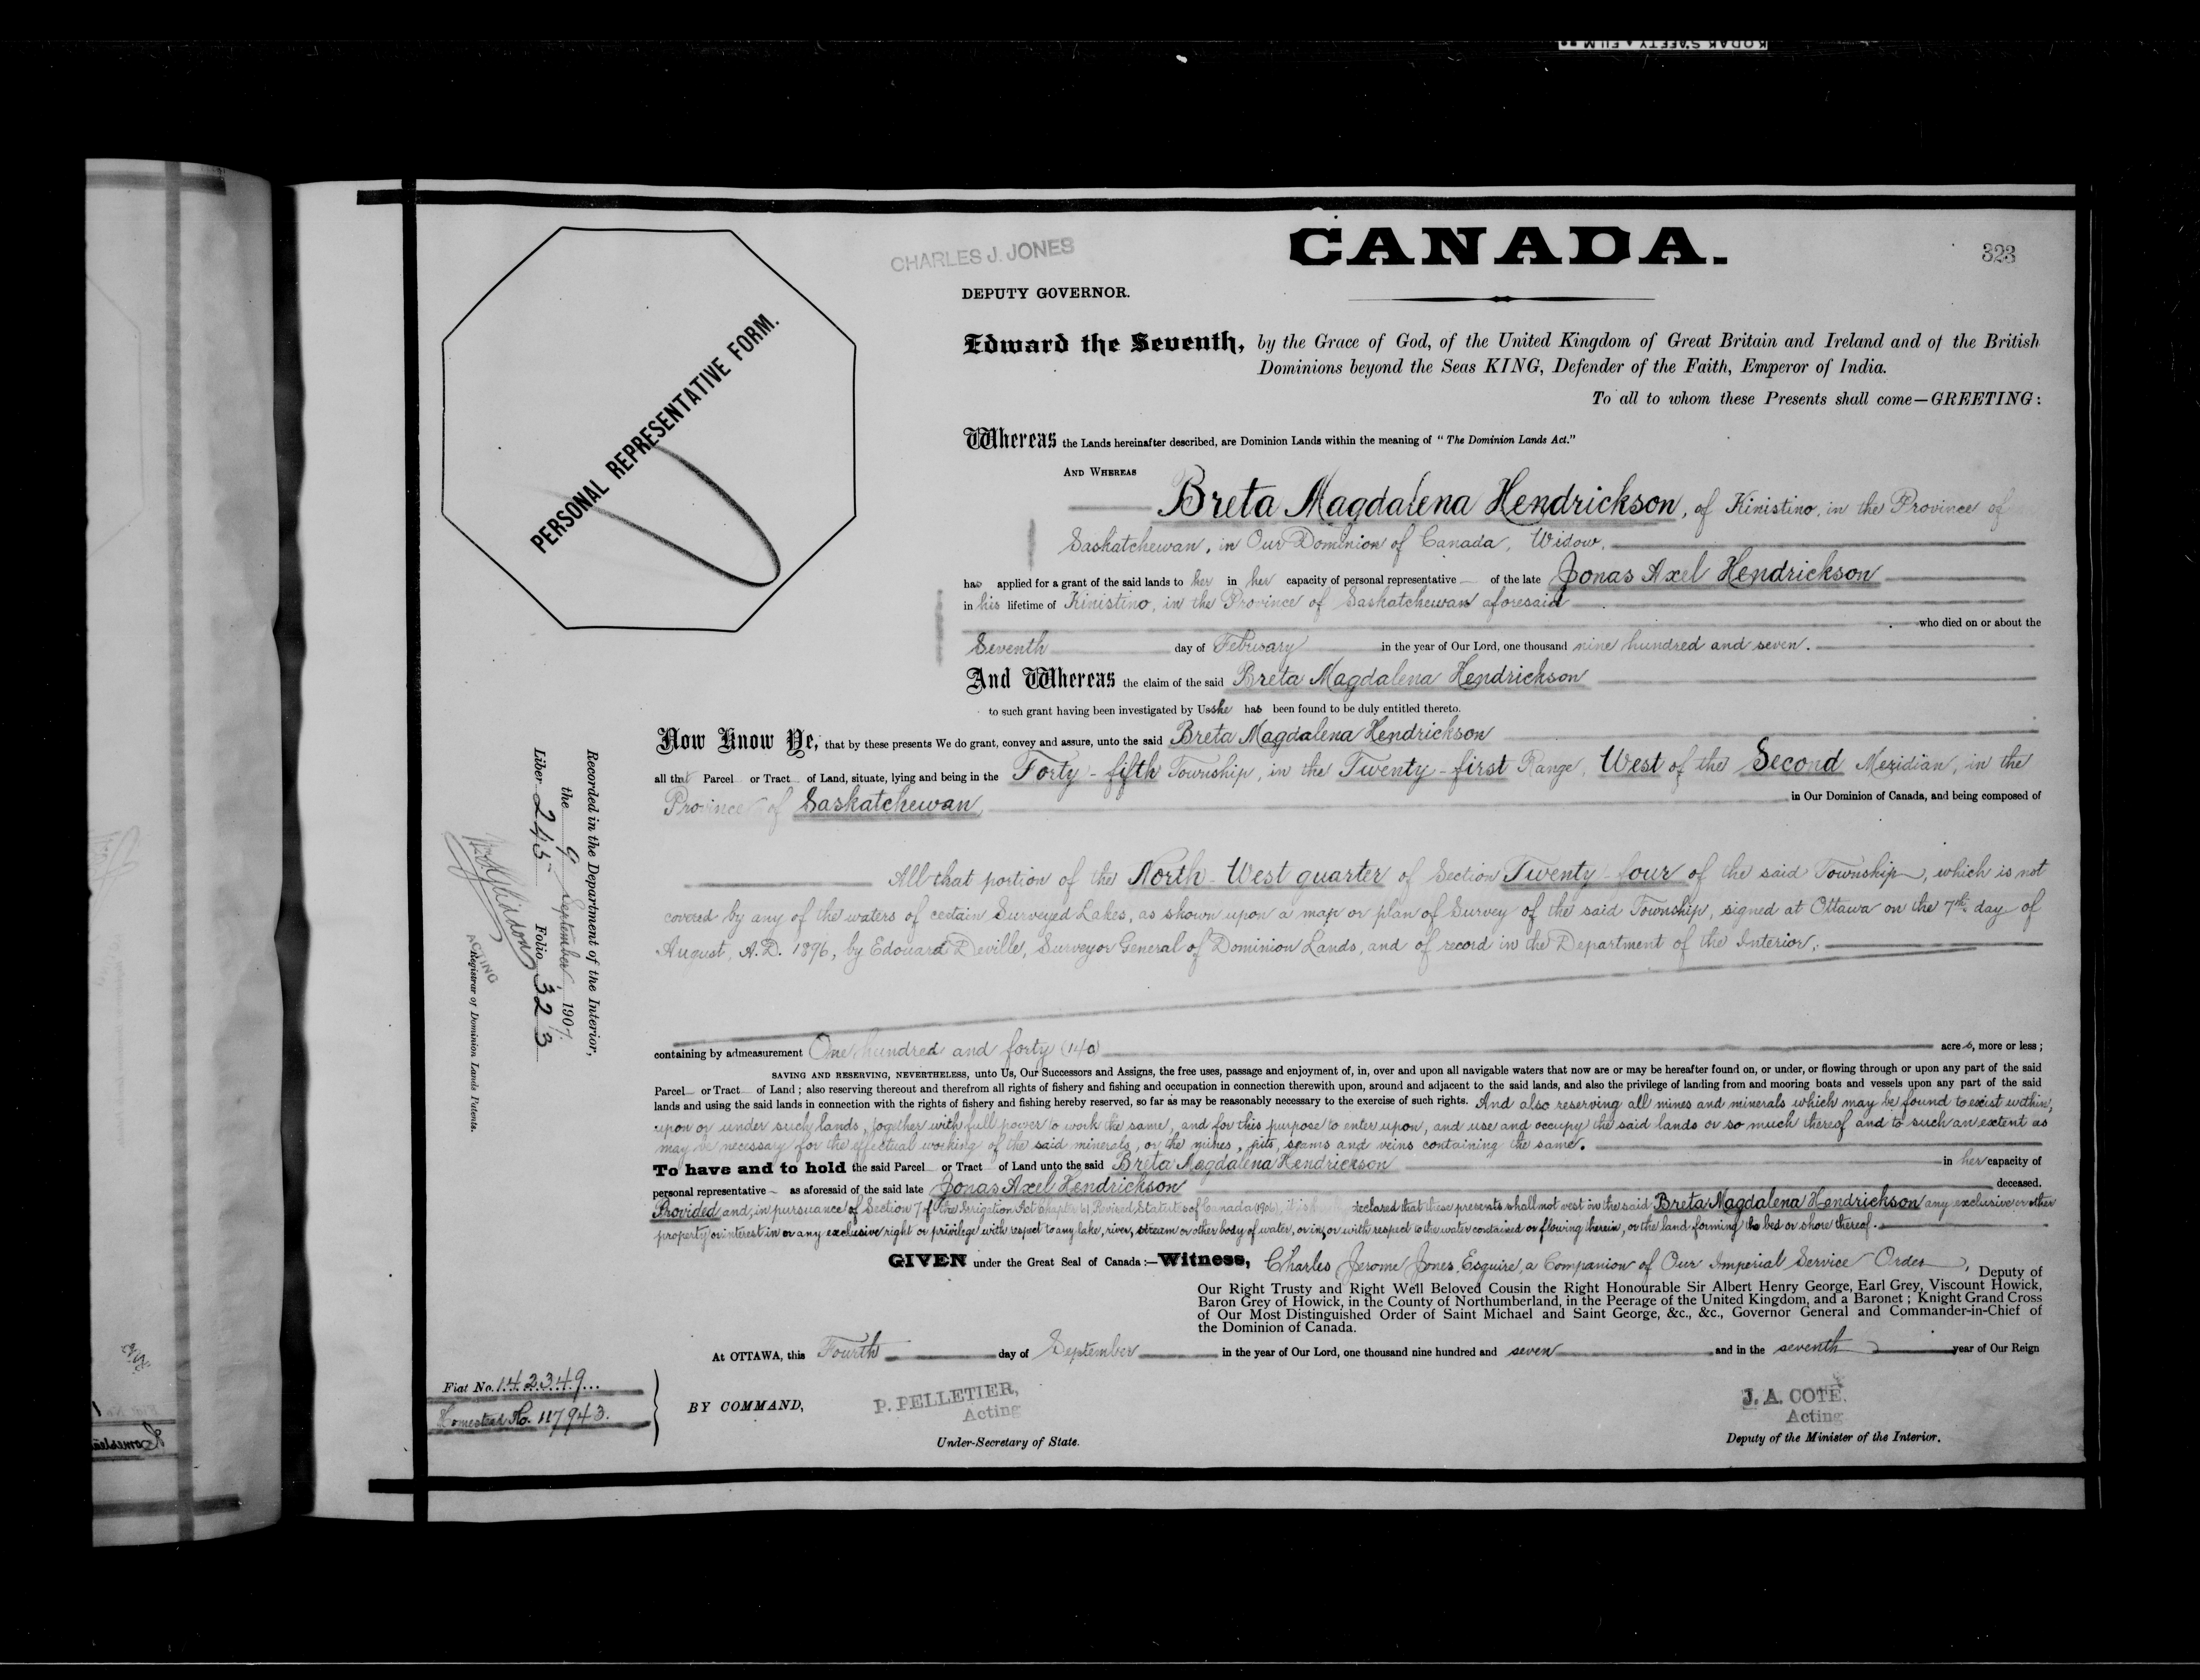 KODAK SAFETY FILM
CHARLES J. JONES
CANADA.
323
DEPUTY GOVERNOR.
PERSONAL REPRESENTATIVE FORM.
Edward the Seventh, by the Grace of God, of the United Kingdom of Great Britain and Ireland and of the British
Dominions beyond the Seas KING, Defender of the Faith, Emperor of India.
To all to whom these Presents shall come—GREETING:
Whereas the Lands hereinafter described, are Dominion Lands within the meaning of "The Dominion Lands Act."
AND WHEREAS
Breta Magdalena Hendrickson, of Kinistino, in the Province of
Saskatchewan, in Our Dominion of Canada, Widow,
has applied for a grant of the said lands to her in her capacity of personal representative of the late Jonas Axel Hendrickson
in his lifetime of Kinistino, in the Province of Saskatchewan aforesaid
who died on or about the
Seventh day of February in the year of Our Lord, one thousand nine hundred and seven.
And Whereas the claim of the said Breta Magdalena Hendrickson
to such grant having been investigated by Us she has been found to be duly entitled thereto.
Now Know Ye, that by these presents We do grant, convey and assure, unto the said Breta Magdalena Hendrickson
all that Parcel or Tract of Land, situate, lying and being in the Forty-fifth Township, in the Twenty-first Range, West of the Second Meridian, in the
Province of Saskatchewan, in Our Dominion of Canada, and being composed of
All that portion of the North-West quarter of Section Twenty-four of the said Township, which is not
covered by any of the waters of certain Surveyed Lakes, as shown upon a map or plan of Survey of the said Township, signed at Ottawa on the 7th day of
August, A.D. 1896, by Edouard Deville, Surveyor General of Dominion Lands, and of record in the Department of the Interior,
containing by admeasurement One hundred and forty (140) acres, more or less;
SAVING AND RESERVING, NEVERTHELESS, unto Us, Our Successors and Assigns, the free uses, passage and enjoyment of, in, over and upon all navigable waters that now are or may be hereafter found on, or under, or flowing through or upon any part of the said
Parcel or Tract of Land; also reserving thereout and therefrom all rights of fishery and fishing and occupation in connection therewith upon, around and adjacent to the said lands, and also the privilege of landing from and mooring boats and vessels upon any part of the said
lands and using the said lands in connection with the rights of fishery and fishing hereby reserved, so far as may be reasonably necessary to the exercise of such rights. And also reserving all mines and minerals which may be found to exist within,
upon or under such lands, together with full power to work the same, and for this purpose to enter upon, and use and occupy the said lands or so much thereof and to such an extent as
may be necessary for the effectual working of the said minerals, or the mines, pits, seams and veins containing the same.
To have and to hold the said Parcel or Tract of Land unto the said Breta Magdalena Hendrickson in her capacity of
personal representative as aforesaid of the said late Jonas Axel Hendrickson deceased.
Provided and, in pursuance of Section 7 of the Irrigation Act Chapter 61 Revised Statutes of Canada (1906), it is declared that these presents shall not vest in the said Breta Magdalena Hendrickson any exclusive or other
property or interest in or any exclusive right or privilege with respect to any lake, river, stream or other body of water, or in, or with respect to the water contained or flowing therein, or the land forming the bed or shore thereof.
GIVEN under the Great Seal of Canada:—Witness, Charles Jerome Jones, Esquire, a Companion of Our Imperial Service Order, Deputy of
Our Right Trusty and Right Well Beloved Cousin the Right Honourable Sir Albert Henry George, Earl Grey, Viscount Howick,
Baron Grey of Howick, in the County of Northumberland, in the Peerage of the United Kingdom, and a Baronet; Knight Grand Cross
of Our Most Distinguished Order of Saint Michael and Saint George, &c., &c., Governor General and Commander-in-Chief of
the Dominion of Canada.
At OTTAWA, this Fourth day of September in the year of Our Lord, one thousand nine hundred and seven and in the seventh year of Our Reign
BY COMMAND,
P. PELLETIER,
Acting
Under-Secretary of State.
J. A. COTE.
Acting
Deputy of the Minister of the Interior.
Fiat No. 142349
Homestead No. 117943.
Recorded in the Department of the Interior,
the 9 September, 1907.
Liber 245 Folio 323
ACTING
Registrar of Dominion Lands Patents.